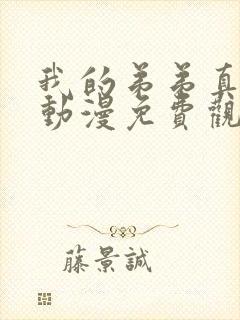 我的弟弟真
動漫免費觀
藤景誠